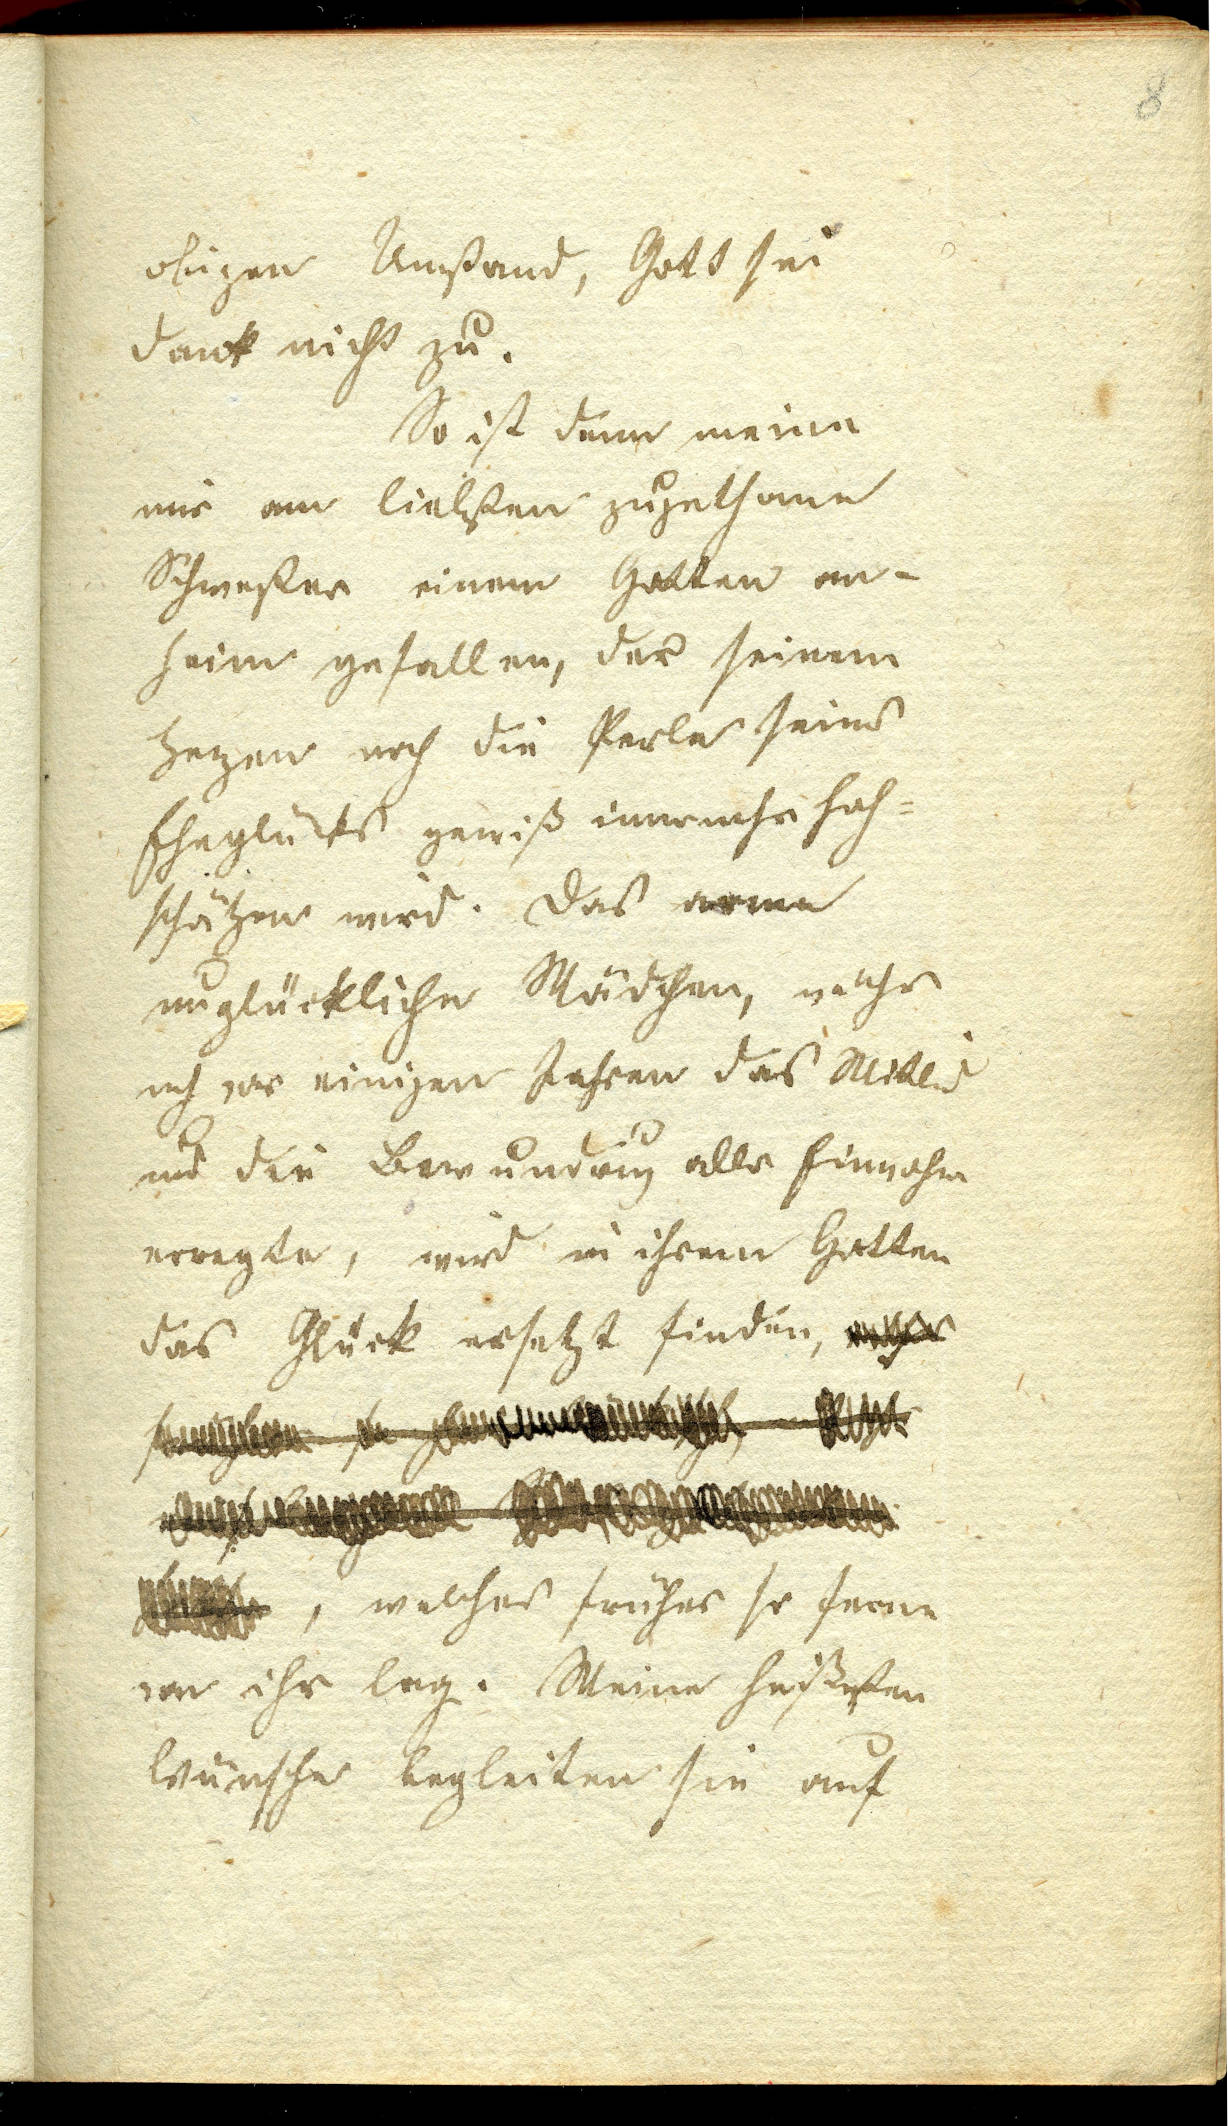 8
obigen Umstand, Gott sei
dank nicht zu.
So ist denn meine
mir am liebsten zugethane
Schwester einem Gatten an-
heim gefallen, der seinem
Herzen noch die Perle seines
Eheglücks gewiß immermehr hoch=
schätzen wird. Das arme
unglückliche Mädchen, welches
noch vor einigen Jahren das Mitleid
und die Bewundrung aller Einwohner
erregte, wird in ihrem Gatten
das Glück ersetzt finden,
, welches früher so ferne
von ihr lag. Meine heißesten
Wünsche begleiten sie auf